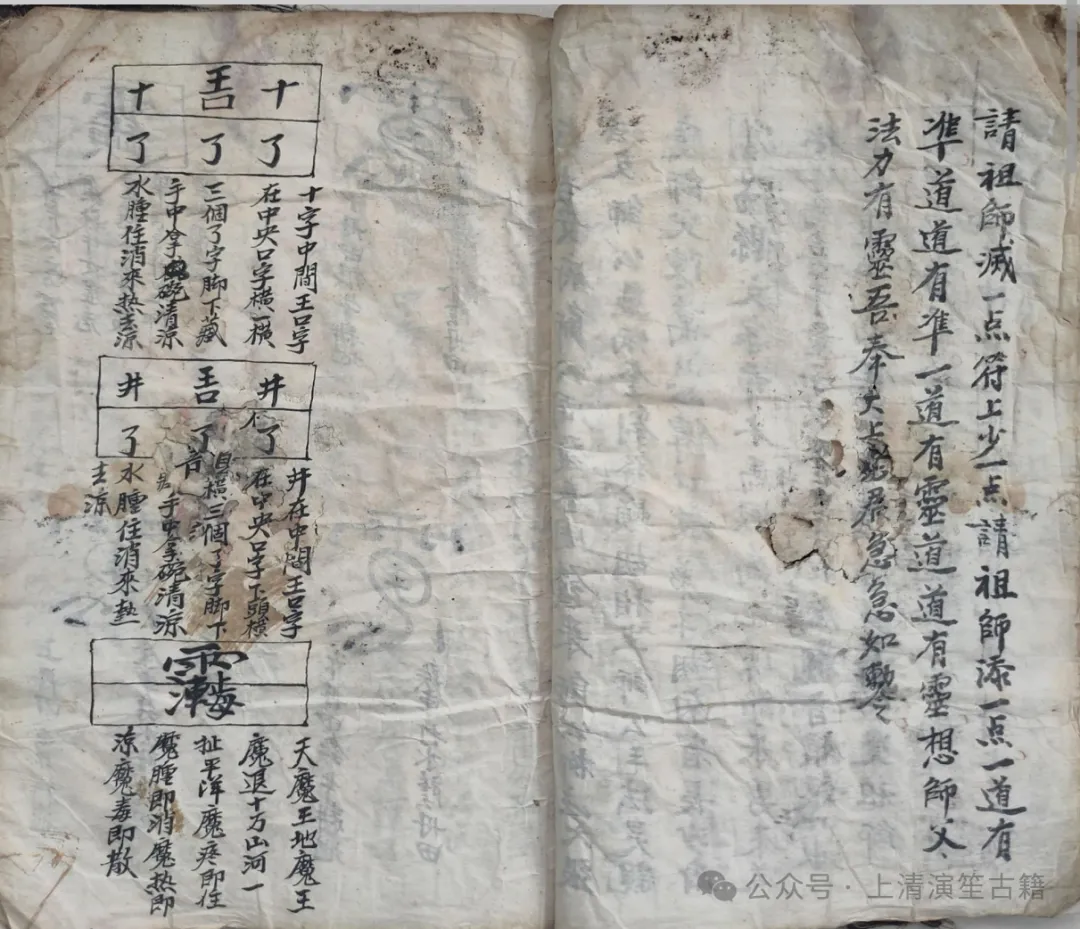 請祖師滅一点符上少一点請祖師添一点一道有
準道道有準一道有靈道道有靈想師父〻
法力有靈吾奉太上老君急急如勅令
十 十
了 了 了
十字中間王口字
在中央口字橫一橫
三個了字脚下藏
手中拿碗清涼
水腫住消來热去涼
井 井
了 了 了
井在中間王口字
在中央口字下頭橫
橫三個了字脚下
手中拿碗清涼
水腫住消來熱
去涼
天魔王地魔王
魔退十万山河一
扯平洋魔疼即住
魔腫即消魔热即
涼魔毒即散
公众号·上清演笙古籍